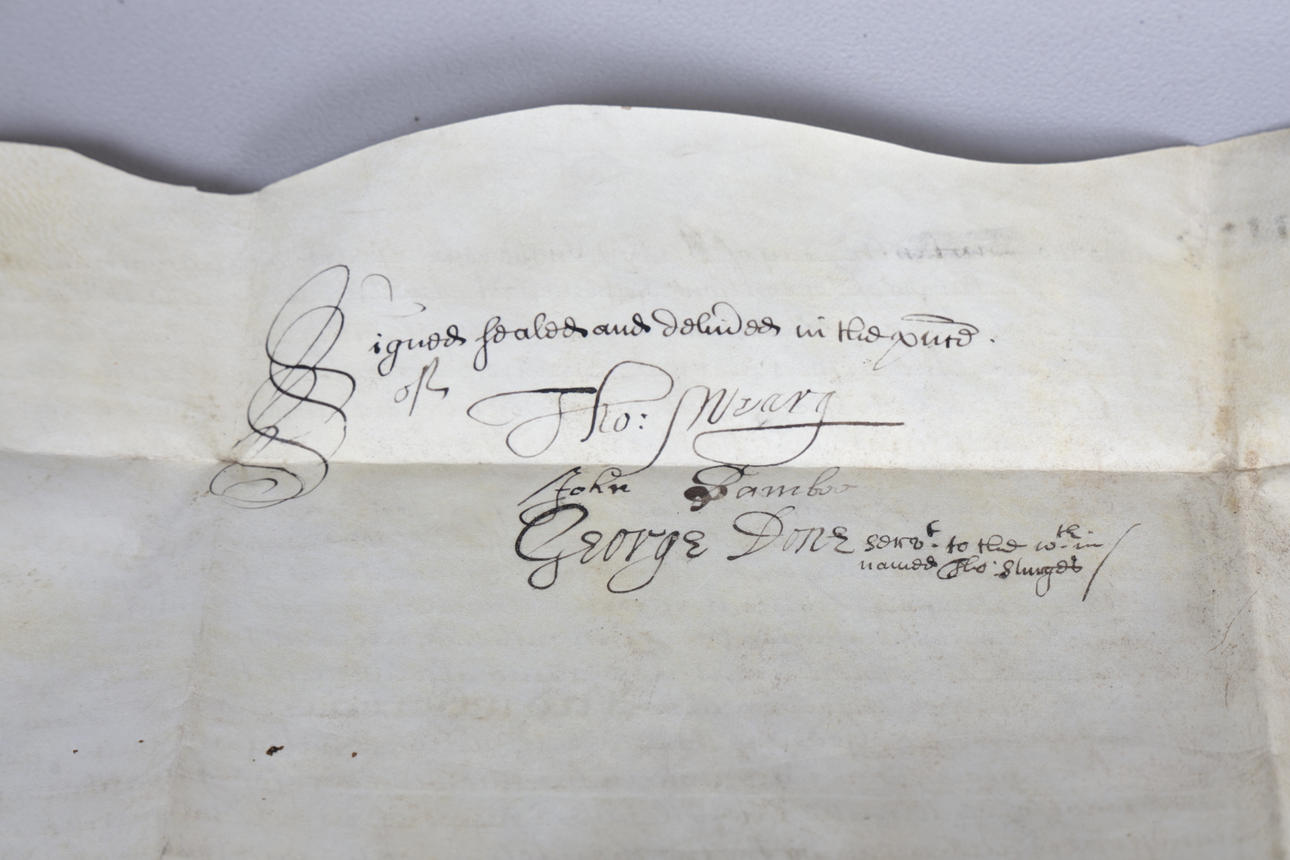 Signed sealed and delived in the pnce.
of
Tho: Wrarg
John Bamboo
George Done serv.t to the w.th in
named Tho: Sturges